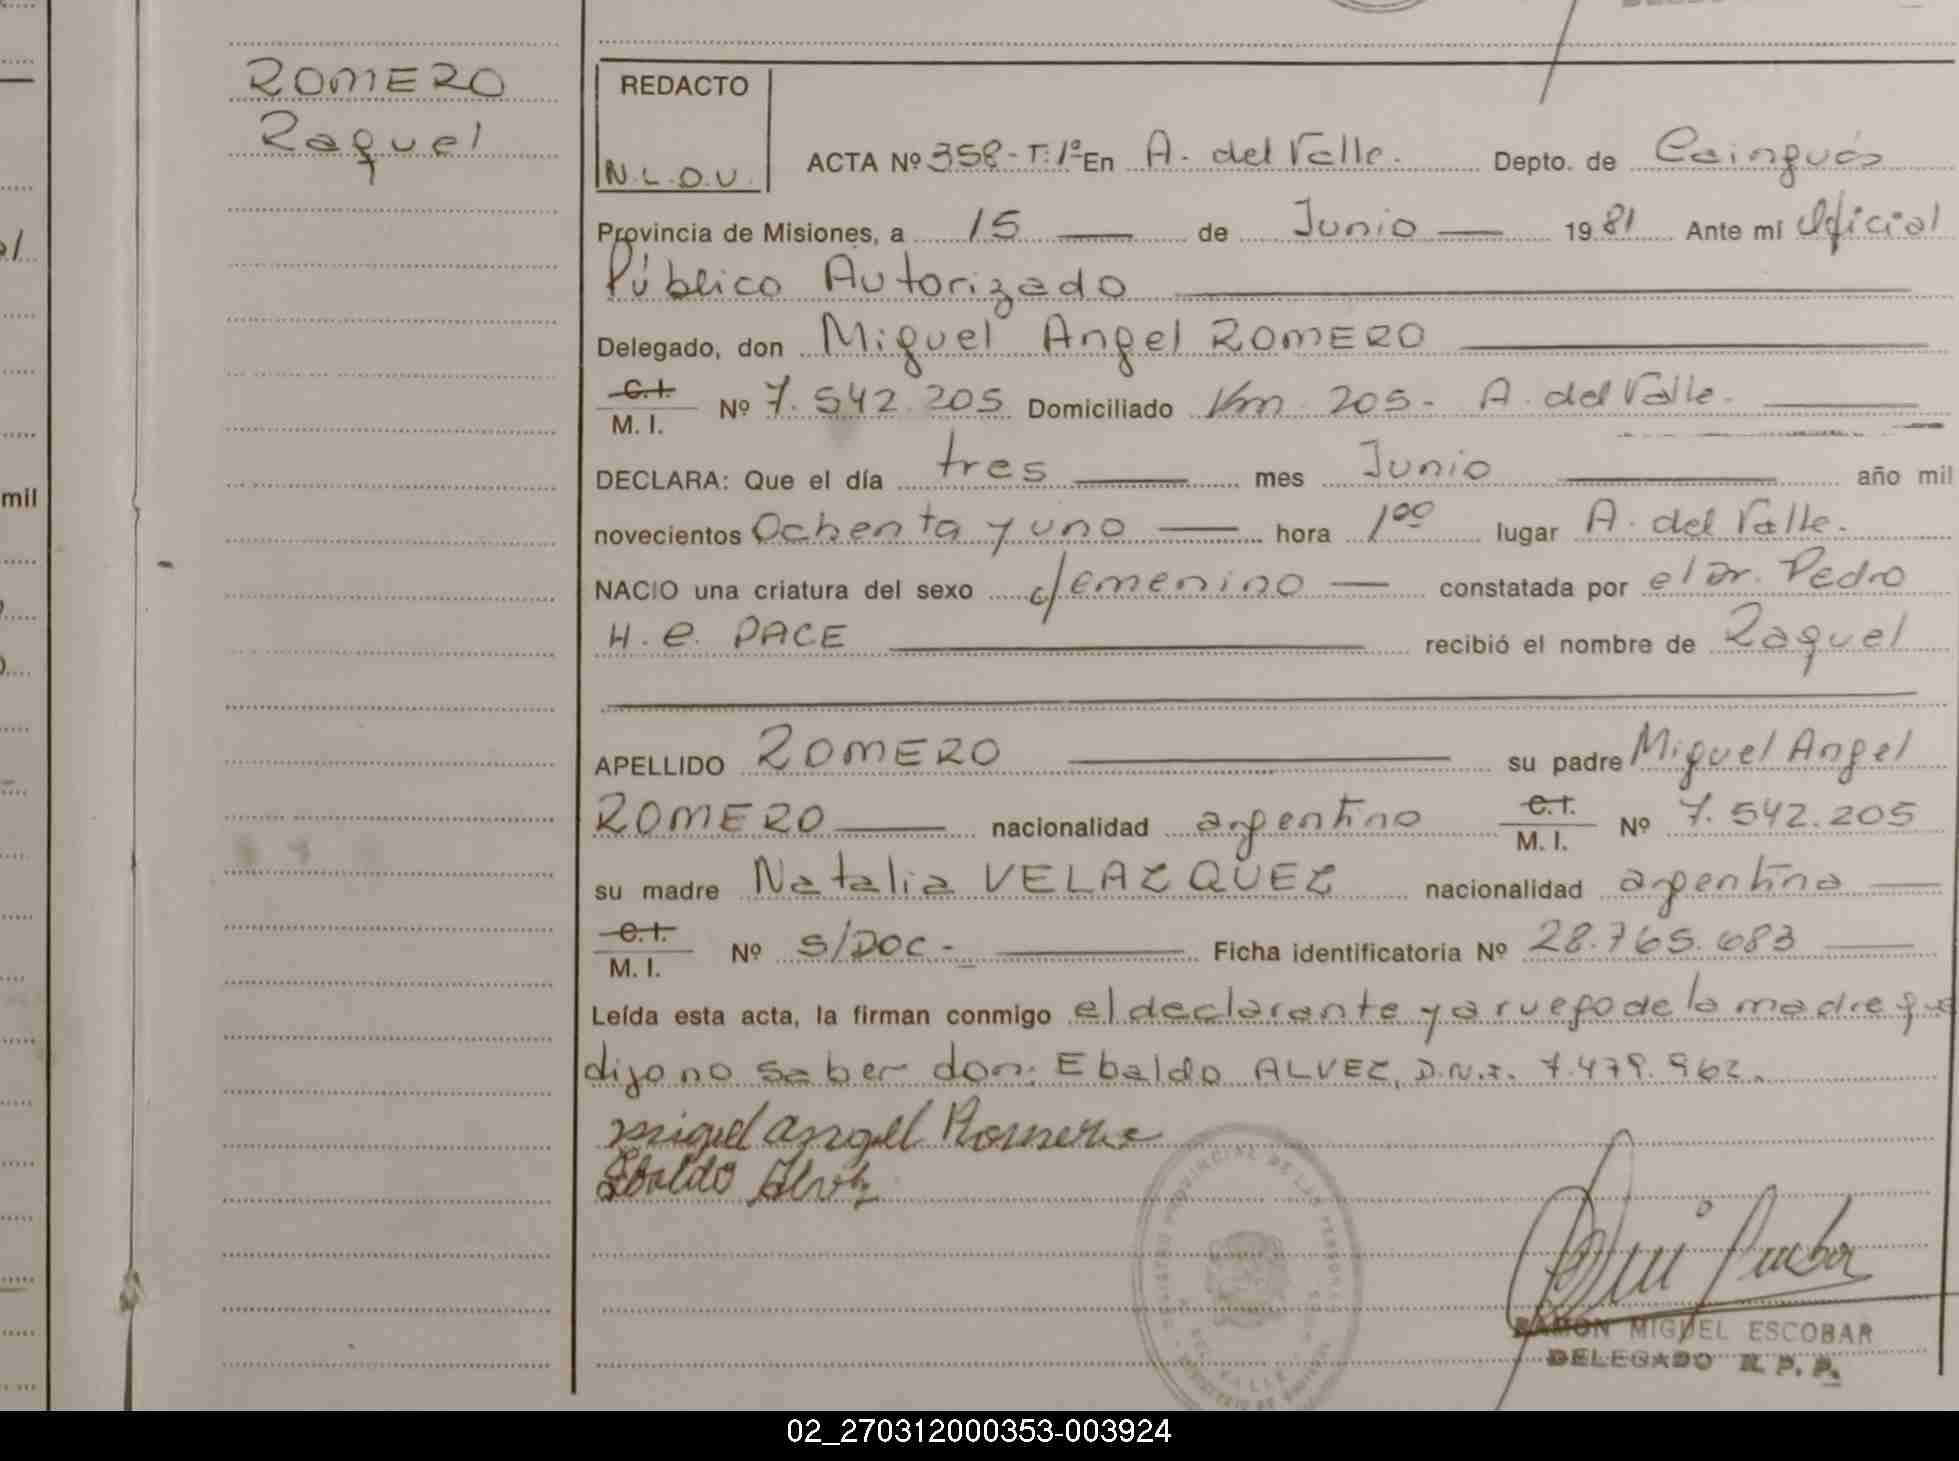 ROMERO
Raquel
REDACTO
N.L.O.V.
ACTA Nº 358-T:1º En A. del Valle. Depto. de Cainguás
Provincia de Misiones, a 15 de Junio 1981 Ante mi Oficial
Público Autorizado
Delegado, don Miguel Angel ROMERO
C.I.
M. I. Nº 7.542.205 Domiciliado Km 205- A. del Valle.
DECLARA: Que el día tres mes Junio año mil
novecientos Ochenta y uno hora 1 00 lugar A. del Valle.
NACIO una criatura del sexo femenino constatada por el Dr. Pedro
H. e. PACE recibió el nombre de Raquel
APELLIDO ROMERO su padre Miguel Angel
ROMERO nacionalidad argentino C.I. M. I. Nº 7.542.205
su madre Natalia VELAZQUEZ nacionalidad argentina
C.I.
M. I. Nº S/DOC- Ficha identificatoria Nº 28.765.683
Leída esta acta, la firman conmigo el declarante y a ruego de la madre que
dijo no saber don: Ebaldo ALVEZ, D.N.I. 7.479.962.
Miguel Angel Romero
Ebaldo Alvez
RAMON MIGUEL ESCOBAR
DELEGADO R. P. P.
mil
02_270312000353-003924